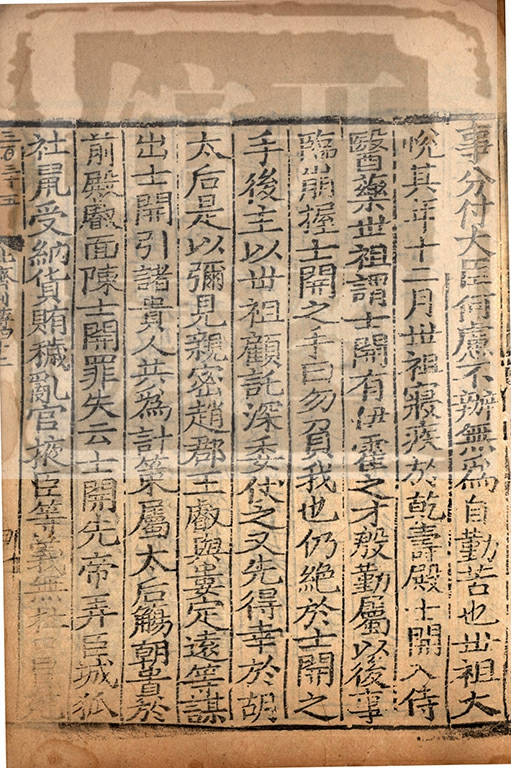 事分付大臣何慮不辦無為自勤苦也世祖大
悅其年十二月世祖寢疾於乾壽殿士開入侍
醫藥世祖謂士開有伊霍之才殷勤屬以後事
臨崩握士開之手曰勿負我也仍絕於士開之
手後主以世祖顧託深委仗之又先得幸於胡
太后是以彌見親密趙郡王叡與婁定遠等謀
出士開引諸貴人共為計策屬太后觴朝貴於
前殿叡面陳士開罪失云士開先帝弄臣城狐
社鼠受納貨賄穢亂宮掖臣等義無杜口冒死
三百三十五